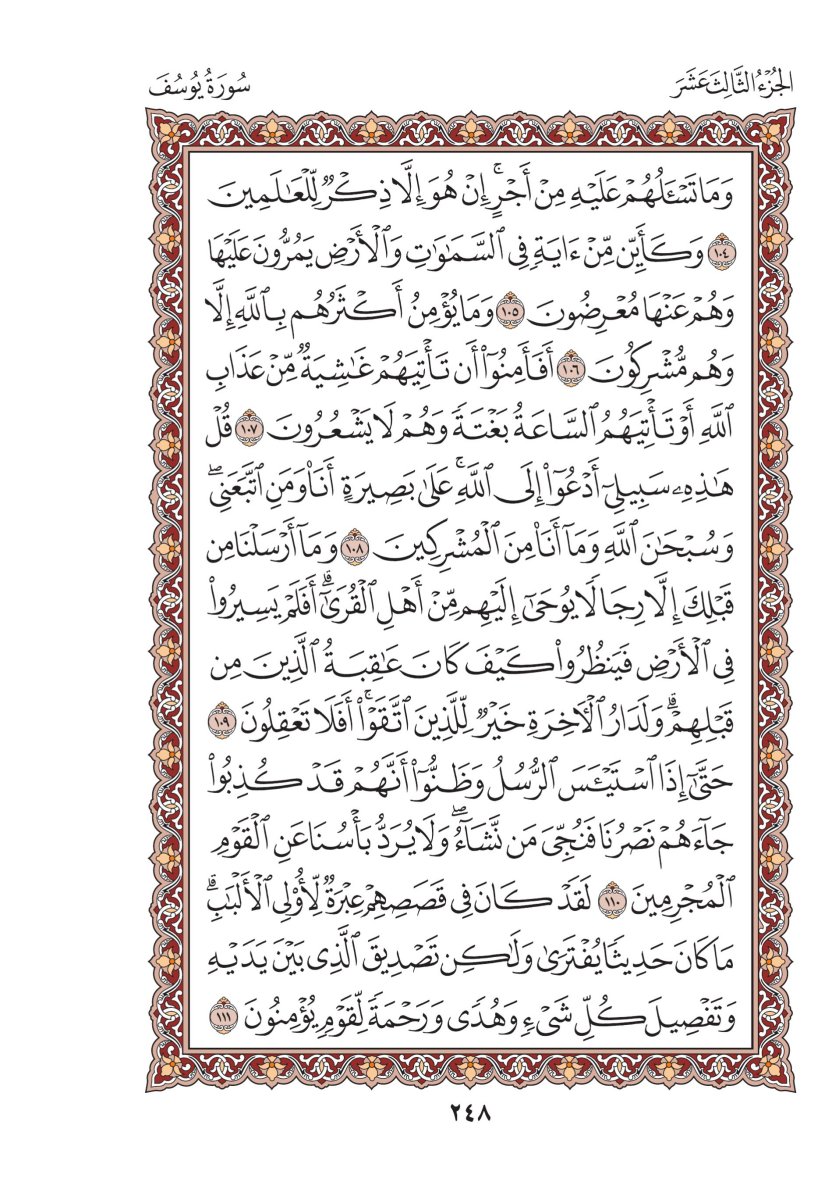 الجُزْءُ الثَّالِثَ عَشَرَ
سُورَةُ يُوسُفَ
وَمَا تَسْـَٔلُهُمْ عَلَيْهِ مِنْ أَجْرٍۚ إِنْ هُوَ إِلَّا ذِكْرٌ لِّلْعَٰلَمِينَ
١٠٤ وَكَأَيِّن مِّنْ ءَايَةٍ فِي ٱلسَّمَٰوَٰتِ وَٱلْأَرْضِ يَمُرُّونَ عَلَيْهَا
وَهُمْ عَنْهَا مُعْرِضُونَ ١٠٥ وَمَا يُؤْمِنُ أَكْثَرُهُم بِٱللَّهِ إِلَّا
وَهُم مُّشْرِكُونَ ١٠٦ أَفَأَمِنُوٓا۟ أَن تَأْتِيَهُمْ غَٰشِيَةٌ مِّنْ عَذَابِ
ٱللَّهِ أَوْ تَأْتِيَهُمُ ٱلسَّاعَةُ بَغْتَةً وَهُمْ لَا يَشْعُرُونَ ١٠٧ قُلْ
هَٰذِهِۦ سَبِيلِيٓ أَدْعُوٓا۟ إِلَى ٱللَّهِۚ عَلَىٰ بَصِيرَةٍ أَنَا۠ وَمَنِ ٱتَّبَعَنِيۖ
وَسُبْحَٰنَ ٱللَّهِ وَمَآ أَنَا۠ مِنَ ٱلْمُشْرِكِينَ ١٠٨ وَمَآ أَرْسَلْنَا مِن
قَبْلِكَ إِلَّا رِجَالًا يُوحَىٰٓ إِلَيْهِم مِّنْ أَهْلِ ٱلْقُرَىٰٓۗ أَفَلَمْ يَسِيرُوا۟
فِي ٱلْأَرْضِ فَيَنظُرُوا۟ كَيْفَ كَانَ عَٰقِبَةُ ٱلَّذِينَ مِن
قَبْلِهِمْۗ وَلَدَارُ ٱلْـَٔاخِرَةِ خَيْرٌ لِّلَّذِينَ ٱتَّقَوْا۟ۚ أَفَلَا تَعْقِلُونَ ١٠٩
حَتَّىٰٓ إِذَا ٱسْتَيْـَٔسَ ٱلرُّسُلُ وَظَنُّوٓا۟ أَنَّهُمْ قَدْ كُذِبُوا۟
جَآءَهُمْ نَصْرُنَا فَنُجِّيَ مَن نَّشَآءُۖ وَلَا يُرَدُّ بَأْسُنَا عَنِ ٱلْقَوْمِ
ٱلْمُجْرِمِينَ ١١٠ لَقَدْ كَانَ فِي قَصَصِهِمْ عِبْرَةٌ لِّأُو۟لِي ٱلْأَلْبَٰبِۗ
مَا كَانَ حَدِيثًا يُفْتَرَىٰ وَلَٰكِن تَصْدِيقَ ٱلَّذِي بَيْنَ يَدَيْهِ
وَتَفْصِيلَ كُلِّ شَيْءٍ وَهُدًى وَرَحْمَةً لِّقَوْمٍ يُؤْمِنُونَ ١١١
٢٤٨